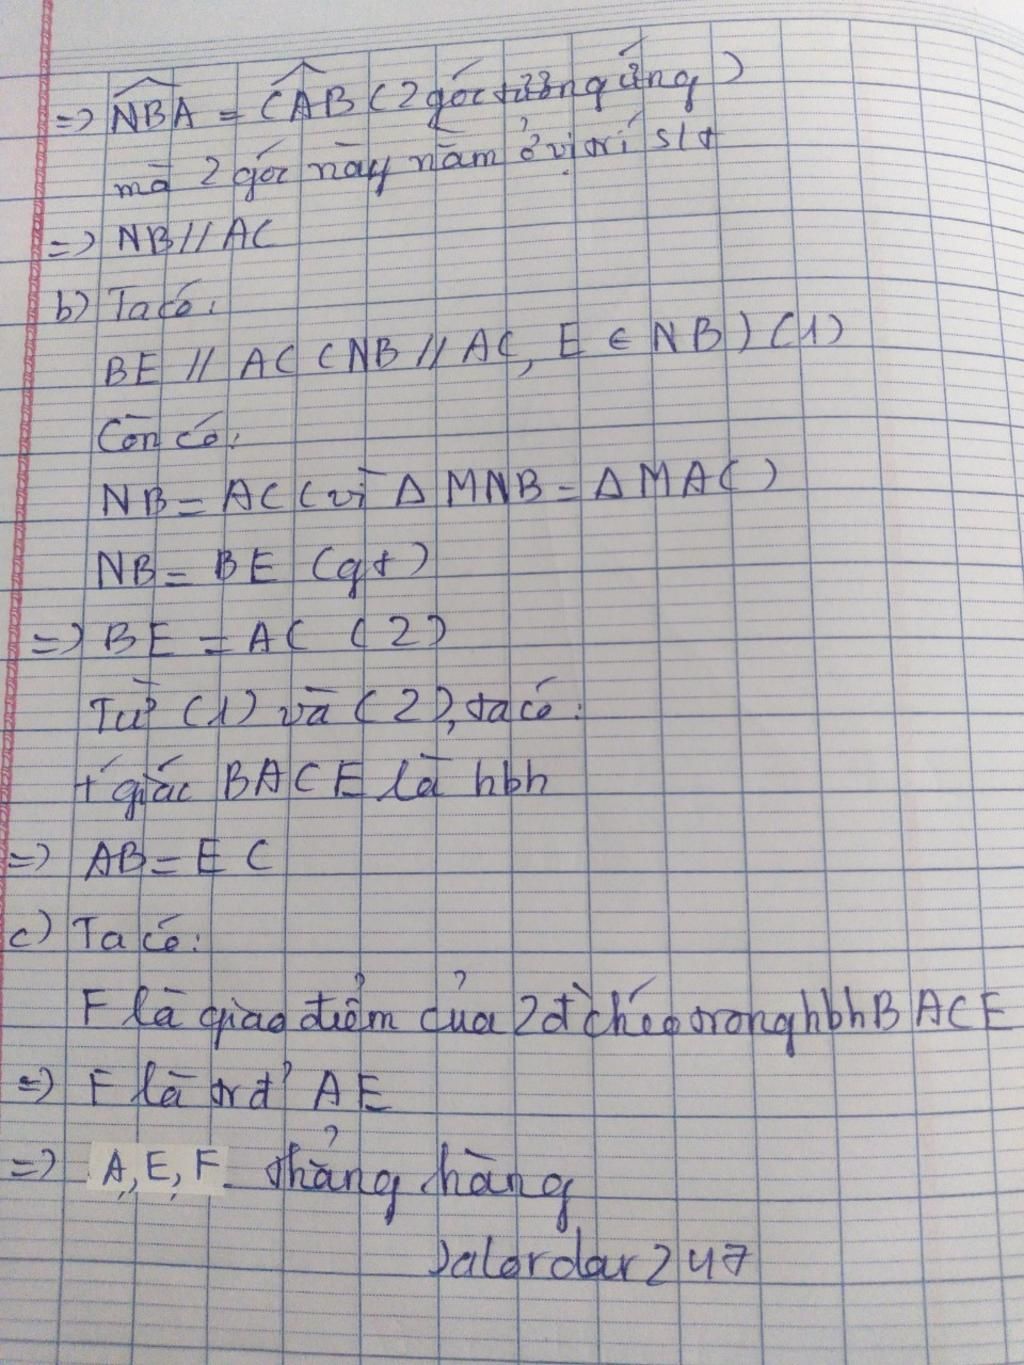 => NBA = CAB (2 góc tương ứng)
mà 2 góc này nằm ở vị trí slt
=> NB // AC
b) Ta có:
BE // AC (NB // AC, E ∈ NB) (1)
Còn có:
NB = AC (vì Δ MNB = Δ MAC)
NB = BE (gt)
=> BE = AC (2)
Từ (1) và (2), ta có:
tứ giác BACE là hbh
=> AB = EC
c) Ta có:
F là giao điểm của 2 đ' chéo trong hbh BACE
=> F là trđ' AE
=> A, E, F thẳng hàng